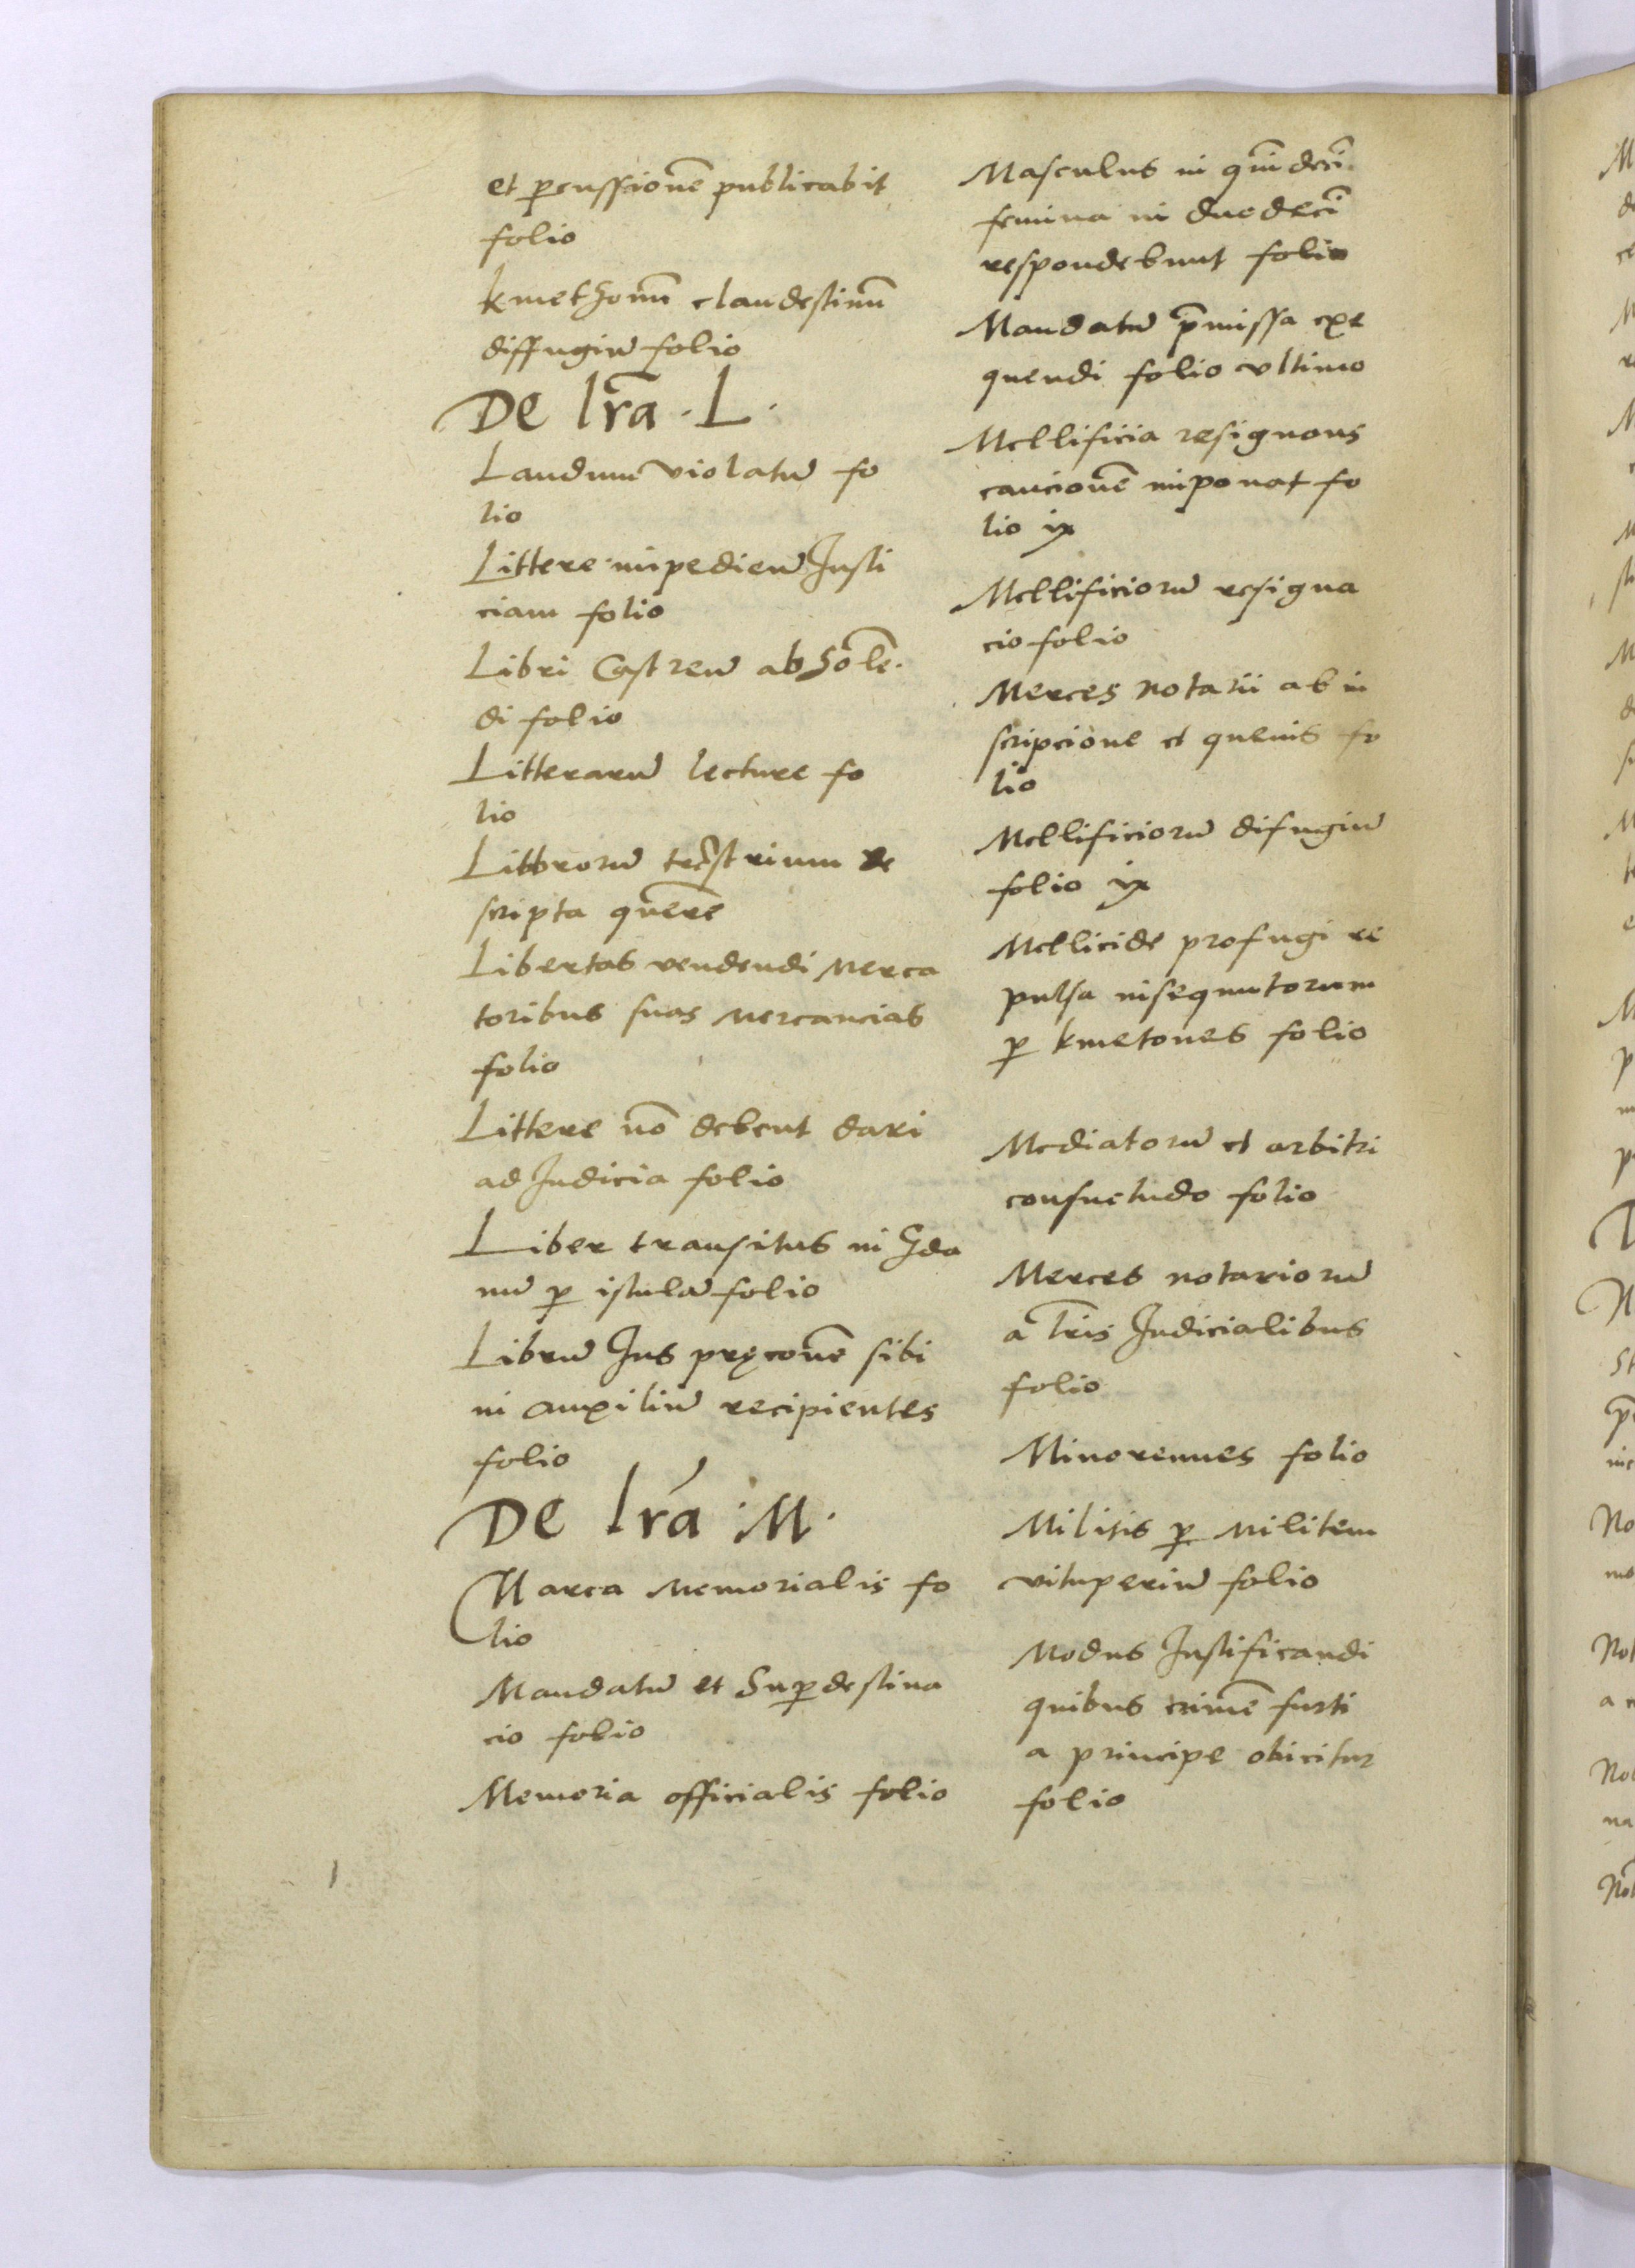 et ꝑcussionē publicabit
folio
kmethonū clandestinū
diffugiū folio
De lr̃a . L .
Laudum violatū fo
lio
Littere impedieñ Justi
ciam folio
Libri Castreñ absolē
di folio
Litterarū lecture fo
lio
Librorū terr̃strium re
scripta querere
Libertas vendendi merca
toribus suas mercancias
folio
Littere nō debent dari
ad Judicia folio
Liber transitus in Gda
nū ꝑ istulā folio
Librū Jus pręconē sibi
in auxiliū recipientes
folio
De lr̃a . M .
Marca memorialis fo
lio
Mandatū et Suꝑdestina
cio folio
Memoria officialis folio
Masculus in quīdeci
femina in duodecī
respondebunt folio
Mandatū p̄missa exe
quendi folio vltimo
Mellificia resignans
caucionē imponat fo
lio ix
Mellificiorū resigna
cio folio
Merces notarii ab in
scripcione et quevis fo
lio
Mellificiorū difugiū
folio ix
Mellicide profugi re
pulsa insequutorum
ꝑ kmetones folio
Mediatorū et arbitri
consuetudo folio
Merces notariorū
a lr̃is Judicialibus
folio
Minorennes folio
Militis ꝑ militem
vituperiū folio
Modus Justificandi
quibus crimē furti
a principe obicitur
folio